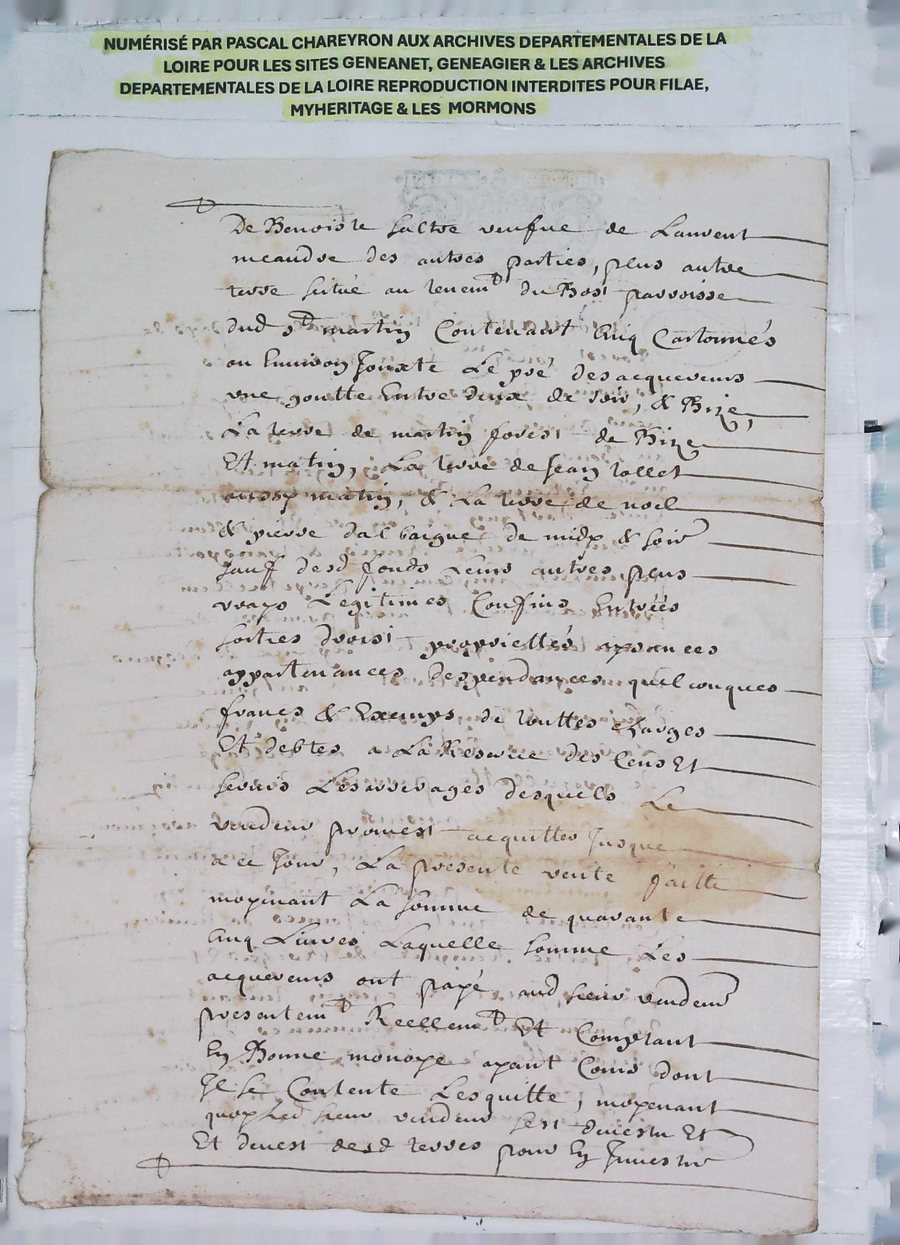 NUMÉRISÉ PAR PASCAL CHAREYRON AUX ARCHIVES DEPARTEMENTALES DE LA
LOIRE POUR LES SITES GENEANET, GENEAGIER & LES ARCHIVES
DEPARTEMENTALES DE LA LOIRE REPRODUCTION INTERDITES POUR FILAE,
MYHERITAGE & LES MORMONS
De Benoiste faltre veufue de Laurent
meandre des autres parties, plus autre
terre scitué au tenemt du Bost parroisse
dud st martin Contenant Cinq Cartonnés
ou Enuiron Jouxte Le pré des acquereurs
vne goutte Entre deux de soir, & Bize,
La terre de martin forest de Bize
Et matin, La terre de Jean
aussy matin, & La terre de noel
& pierre de midy & soir
sauf desd fonds Leurs autres plus
vrays Legitimes Confins Entrées
sorties droist proprietés aysances
appartenances Despendances quelconques
francs & Exemps de touttes charges
Et debtes a La Reserue des Cens Et
seruis Les arrerages desquels Le
vendeur promest acquitter Jusque
a ce Jour, La presente vente faitte
moyenant La somme de quarante
Cinq Liures Laquelle somme Les
acquereurs ont payé aud sieur vendeur
presentemt Reellemt Et Comptant
En Bonne monoye ayant Cours dont
Il se Contente Les quitte, moyenant
quoy Led sieur vendeur sest deuestu Et
Et deuest desd terres pour En Inuestir